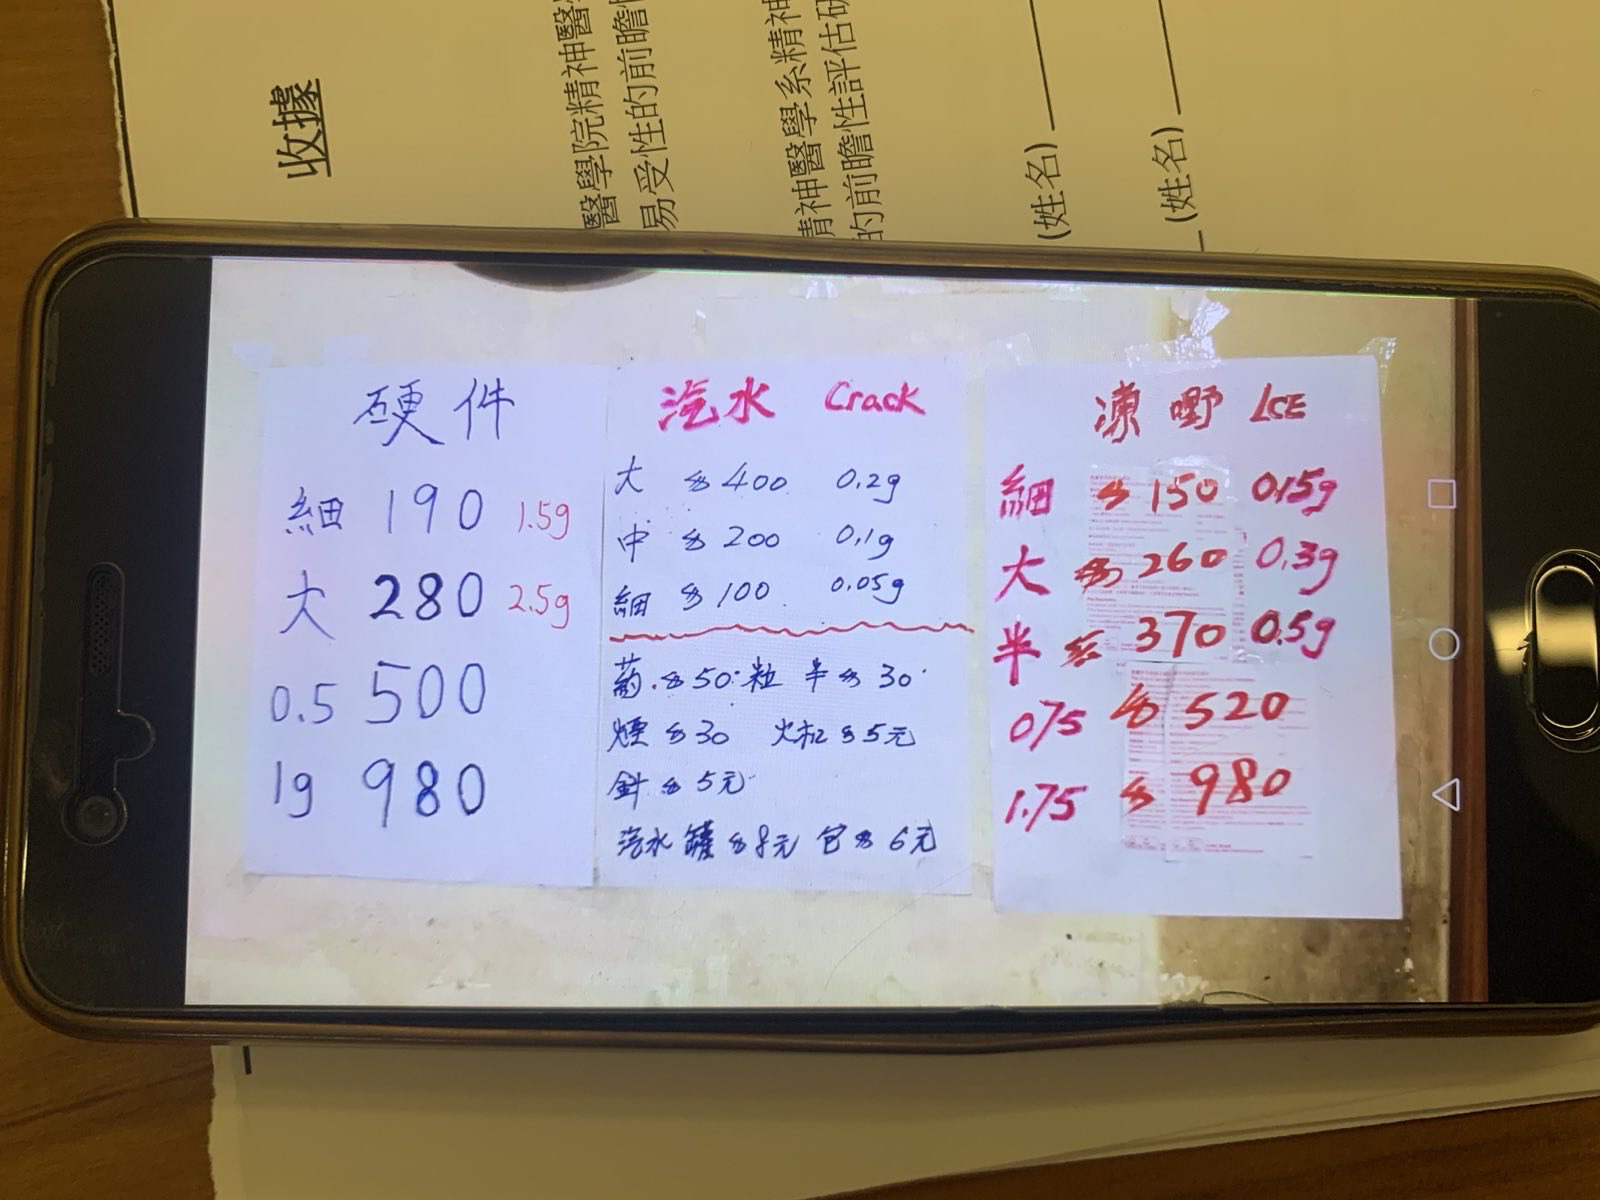 收據
醫學院精神醫學
易受性的前瞻性
精神醫學系精神
的前瞻性評估研
(姓名)
(姓名)
硬件
細 190 1.5g
大 280 2.5g
0.5 500
1g 980
汽水 Crack
大 $400 0.2g
中 $200 0.1g
細 $100 0.05g
药.$50.粒 半$30
煙$30 火机$5元
針$5元
汽水 罐$8元 包$6元
凍嘢 ICE
細 $150 0.15g
大 $260 0.3g
半 $370 0.5g
075 $520
1.75 $980